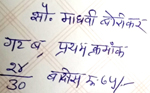 सौ. माधवी बोरीकर
गट ब, प्रथम क्रमांक
२४
30 बक्षीस रु. ७५/-